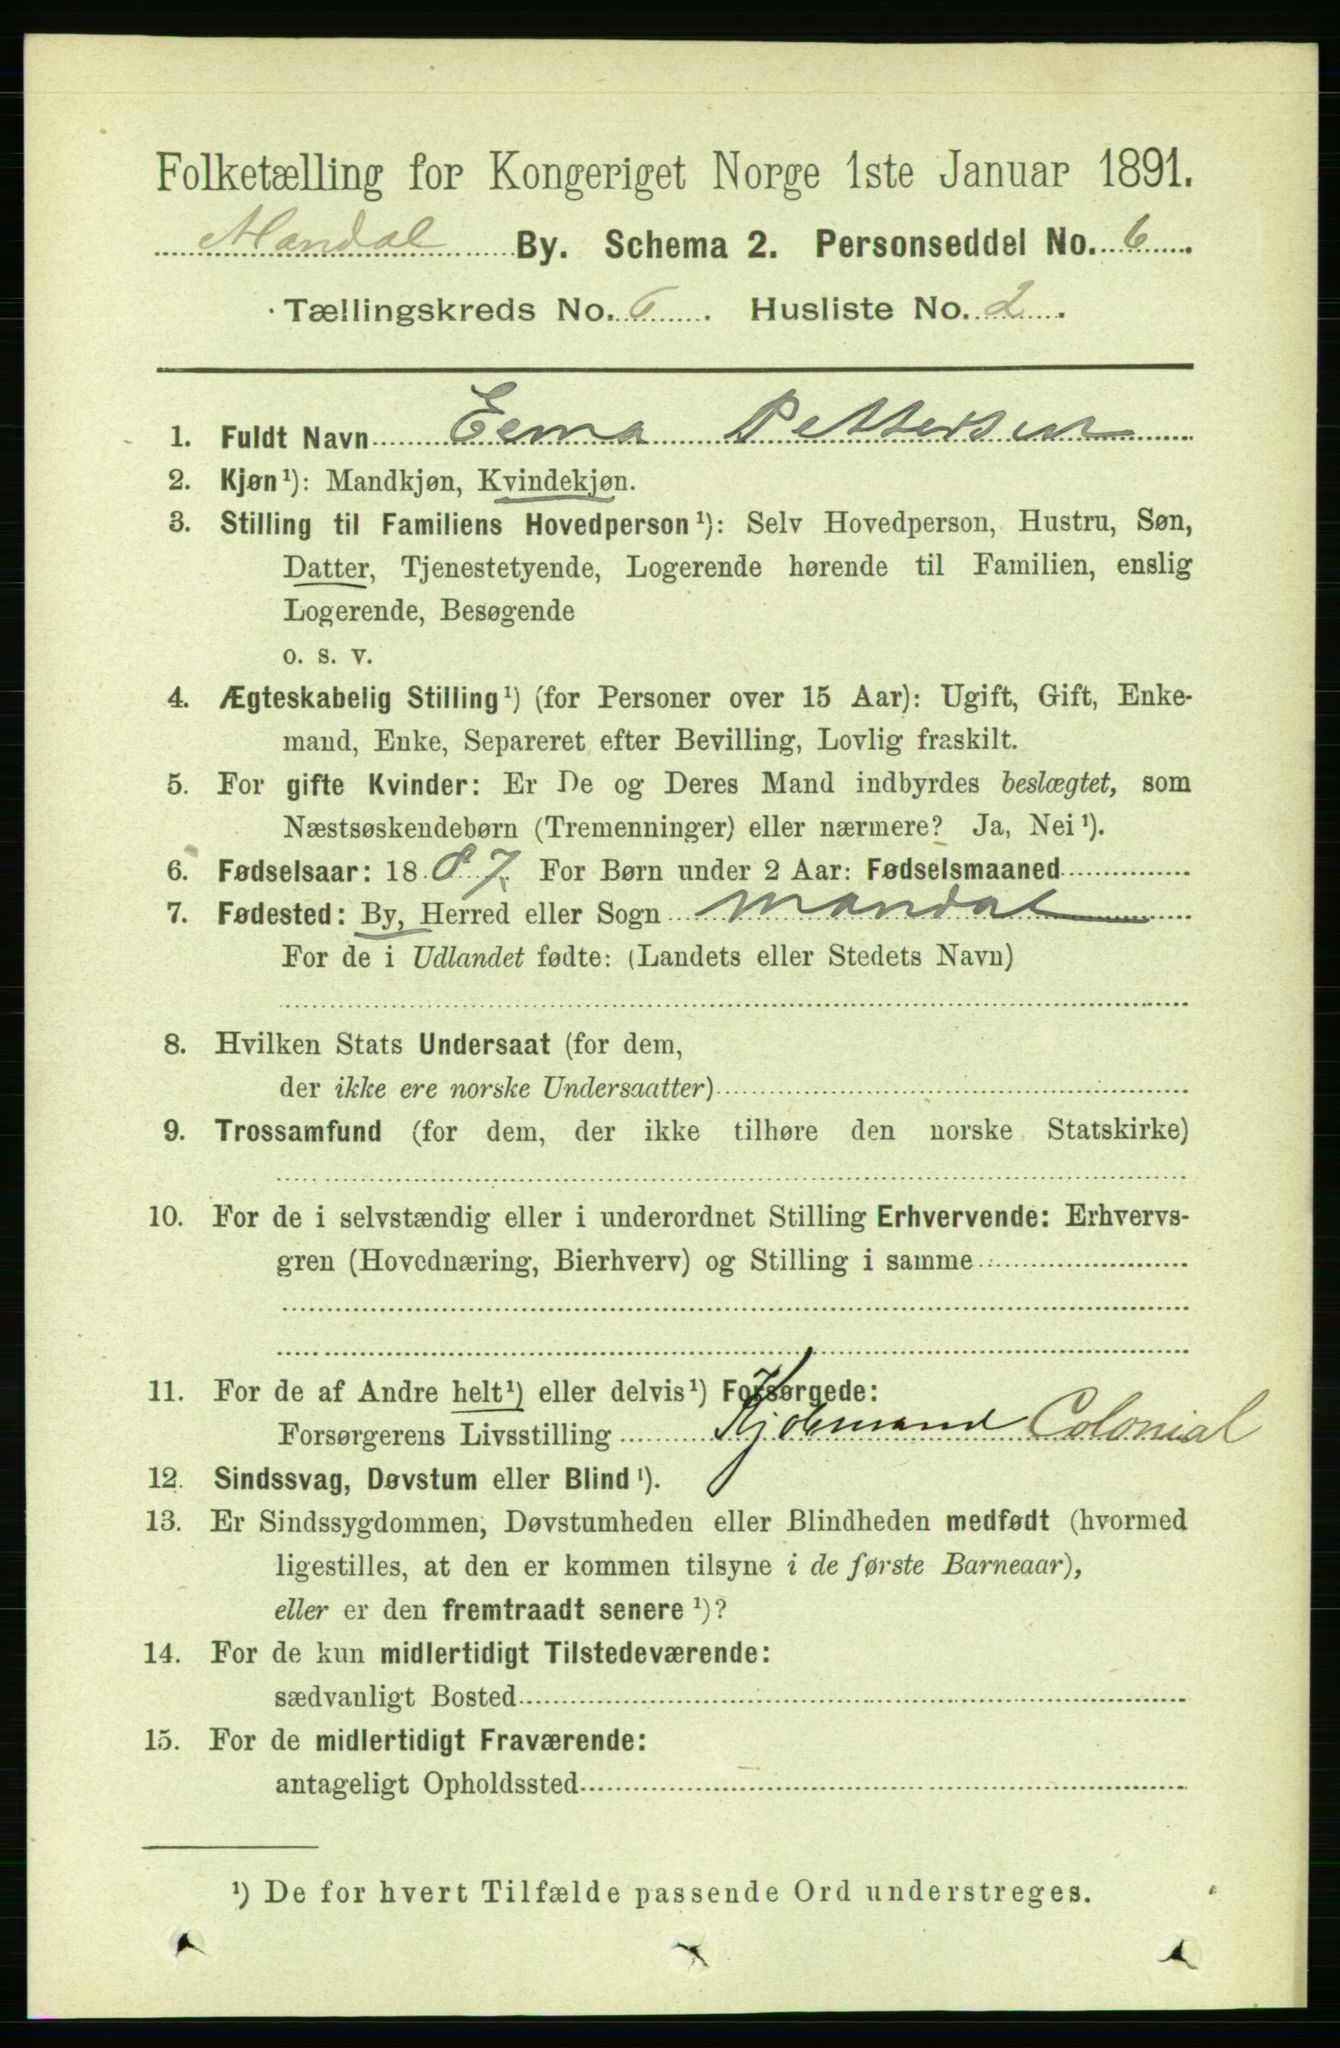 Folketælling for Kongeriget Norge 1ste Januar 1891.
Mandal By. Schema 2. Personseddel No. 6
Tællingskreds No. 6. Husliste No. 2.
1. Fuldt Navn Ema Pettersen
2. Kjøn¹): Mandkjøn, Kvindekjøn.
3. Stilling til Familiens Hovedperson¹): Selv Hovedperson, Hustru, Søn,
Datter, Tjenestetyende, Logerende hørende til Familien, enslig
Logerende, Besøgende
o. s. v.
4. Ægteskabelig Stilling¹) (for Personer over 15 Aar): Ugift, Gift, Enke-
mand, Enke, Separeret efter Bevilling, Lovlig fraskilt.
5. For gifte Kvinder: Er De og Deres Mand indbyrdes beslægtet, som
Næstsøskendebørn (Tremenninger) eller nærmere? Ja, Nei¹).
6. Fødselsaar: 1887. For Børn under 2 Aar: Fødselsmaaned
7. Fødested: By, Herred eller Sogn Mandal
For de i Udlandet fødte: (Landets eller Stedets Navn)
8. Hvilken Stats Undersaat (for dem,
der ikke ere norske Undersaatter)
9. Trossamfund (for dem, der ikke tilhøre den norske Statskirke)
10. For de i selvstændig eller i underordnet Stilling Erhvervende: Erhvervs-
gren (Hovednæring, Bierhverv) og Stilling i samme
11. For de af Andre helt¹) eller delvis¹) Forsørgede:
Forsørgerens Livsstilling Kjøbmand Colonial
12. Sindssvag, Døvstum eller Blind¹).
13. Er Sindssygdommen, Døvstumheden eller Blindheden medfødt (hvormed
ligestilles, at den er kommen tilsyne i de første Barneaar),
eller er den fremtraadt senere¹)?
14. For de kun midlertidigt Tilstedeværende:
sædvanligt Bosted
15. For de midlertidigt Fraværende:
antageligt Opholdssted
¹) De for hvert Tilfælde passende Ord understreges.